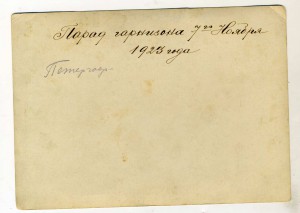 Парад гарнизона 7го Ноября
1923 года
Петергоф.